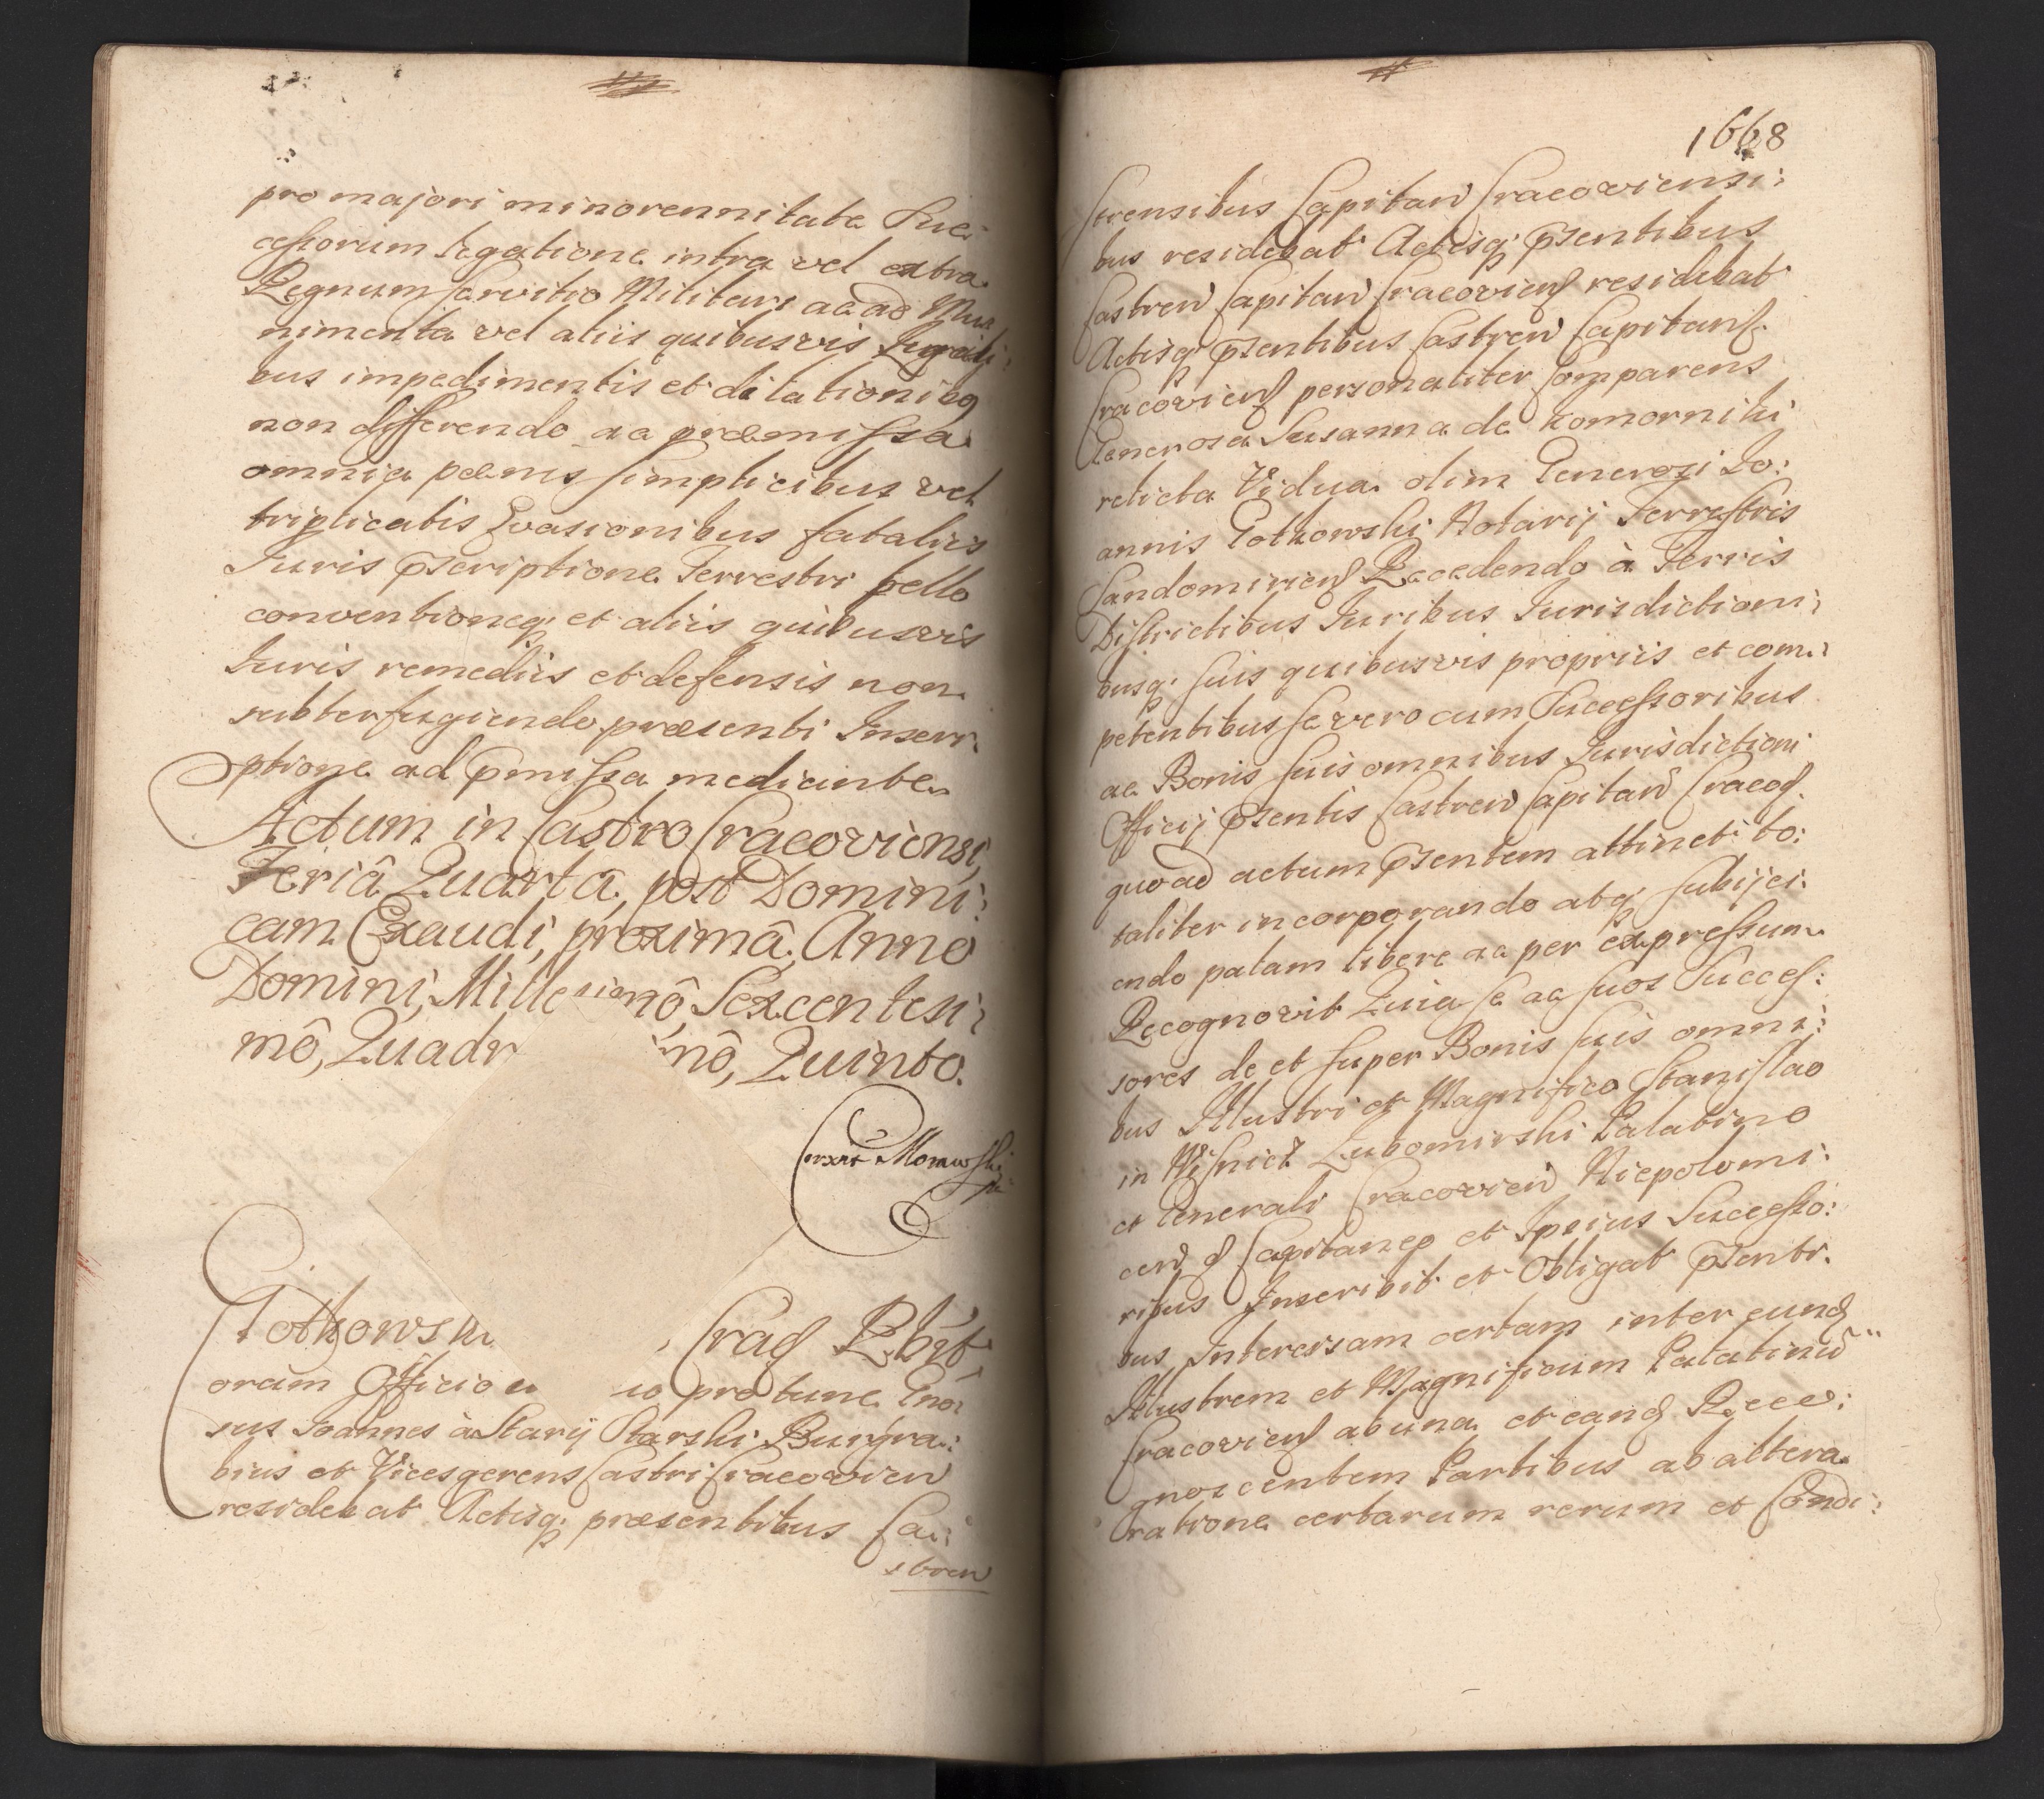 pro majori minorennitate Suc:
cessorum legatione intra vel extra
Regnum servitio Militari ac ad Mu
nimenta vel aliis quibusvis Legali:
bus impedimentis et dilationibq
non differendo ac præmissa
omnia pœnis simplicibus vel
triplicatis Evasionibus fataliis
Iuris pscriptione Terrestri bello
conventioneq; et aliis quibusvis
Iuris remediis et defensis non
subterfugiendo præsenti Inscri:
ptione ad pmissa mediante
Actum in Castro Cracoviensi,
Feriâ Quartâ, post Domini:
cam Exaudi, proximâ, Anno
Domini, Mille simô, Sexcentesi:
mô, Quadr nô, Quinto.
Morawski
Gotkowski Crac
oram Officio pro tunc Gnō:
sus Joannes à Starij Starski Burgra:
bius et Vicesgerens Castri Cracovien
residebat Actisq; præsentibus Ca:
stren
1668
strensibus Capitan Cracoviensi:
bus residebat Actisq; psentibus
Castren Capitan Cracovien residebat
Actisq; psentibus Castren Capitan
Cracovien personaliter Comparens
Generosa Susanna de Komorniki
relicta Vidua olim Generosi Jo:
annis Gotkowski Notarij Terrestris
Sandomirien Recedendo à Terris
Districtibus Iuribus Iurisdictioni:
busq; suis quibusvis propriis et com:
petentibus se vero cum Successoribus
ac Bonis suis omnibus Iurisdictioni
Officij psentis Castren Capitan Cracov
quoad actum psentem attinet to:
taliter incorporando atq; subijci:
endo palam libere ac per expressum
Recognovit Quia se ac suos Succes:
sores de et super Bonis suis omni:
bus Illustri et Magnifico Stanislao
in Wisnicz Lubomirski Palatino
et Generali Cracovien Niepolomi:
cen Capitaneo et Ipsius Successo:
ribus Inscribit et Obligat psenti:
bus Intercisam certam inter eund
Illustrem et Magnificum Palatinū
Cracovien ab una et eand Reco:
gnoscentem Partibus ab altera
ratione certarum rerum et Condi: